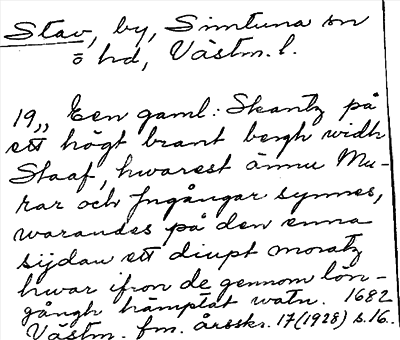 Stav, by, Simtuna sn
o hd, Västm. l.
19,, Een gaml: Skantz på
ett högt brant bergh widh
Staaf, hwarest ännu Mu-
rar och Ingångar synnes,
warandes på den enna
sijdan ett diupt moratz
hwar ifron de gennom lön-
gångh hämptat watn. 1682
Västm. fm. årsskr. 17 (1928) s. 16.